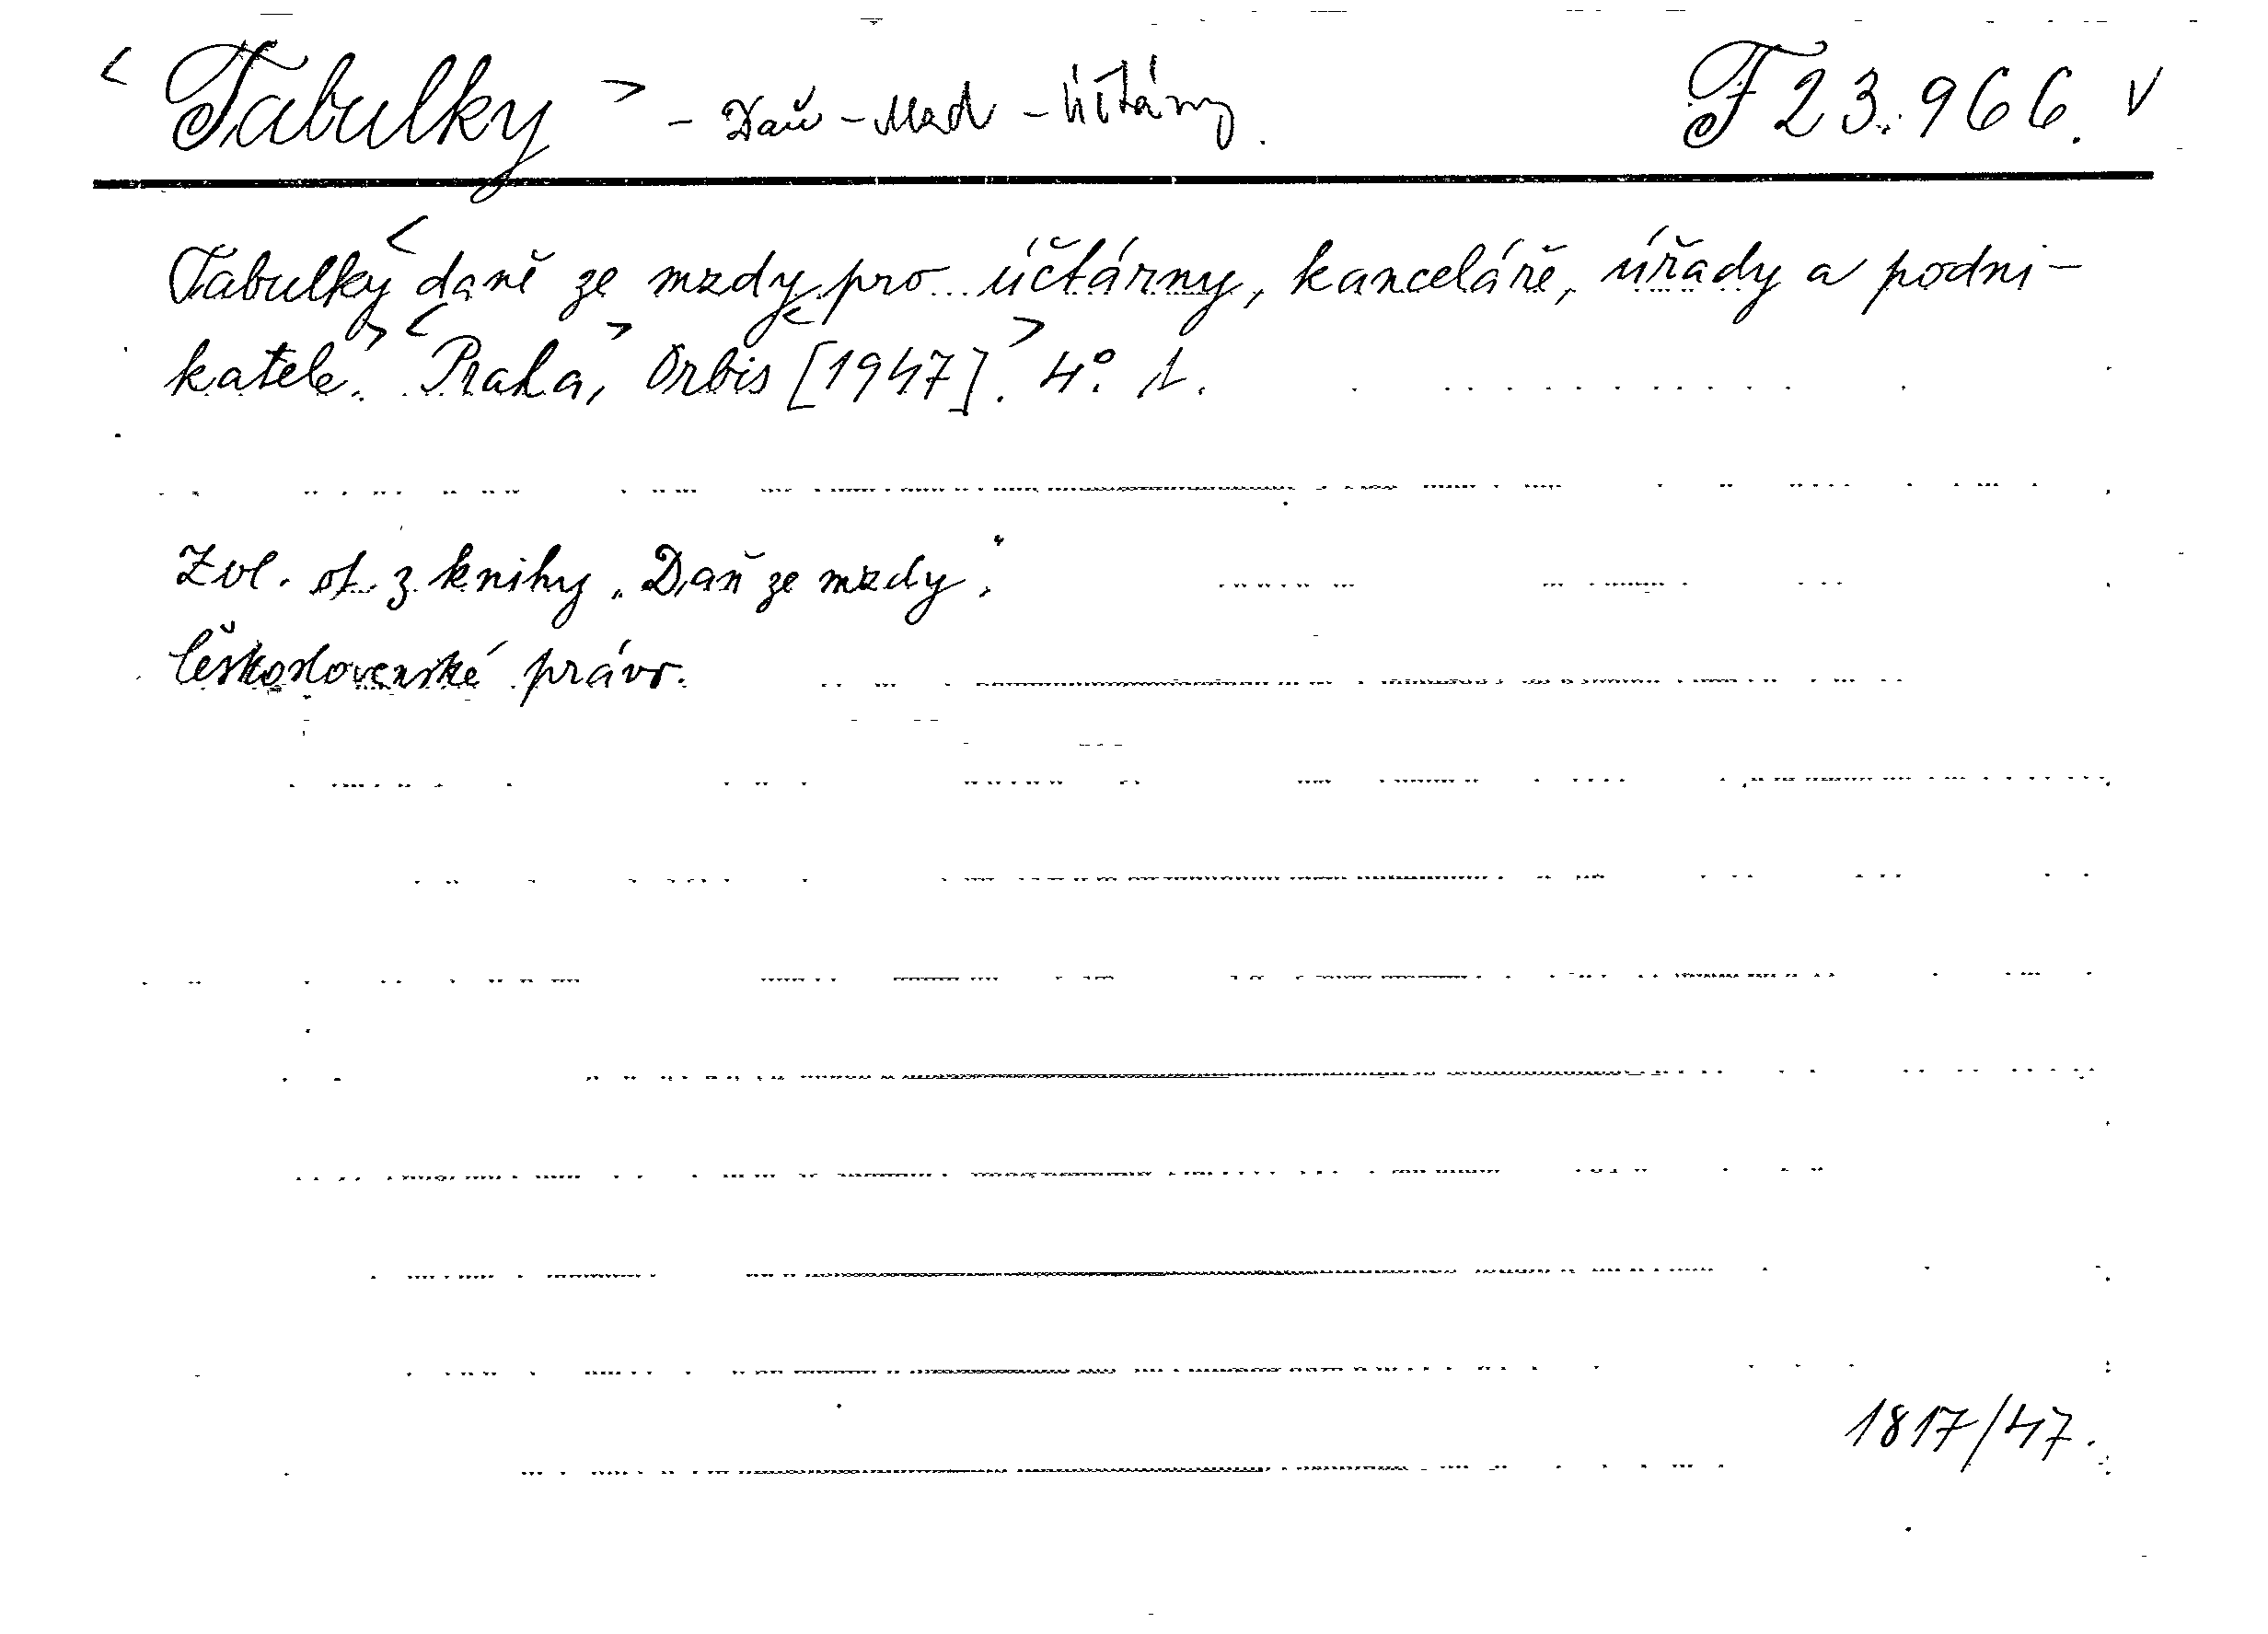 < Tabulky > - Daň - Mzd - Účtárny. F 23.966. v
Tabulky < daně ze mzdy pro účtárny, kanceláře, úřady a podni-
katele. > < Praha, > Orbis < [1947]. > 4°. 1.
Zvl. ot. z knihy „Daň ze mzdy“.
Československé právo.
1817/47.